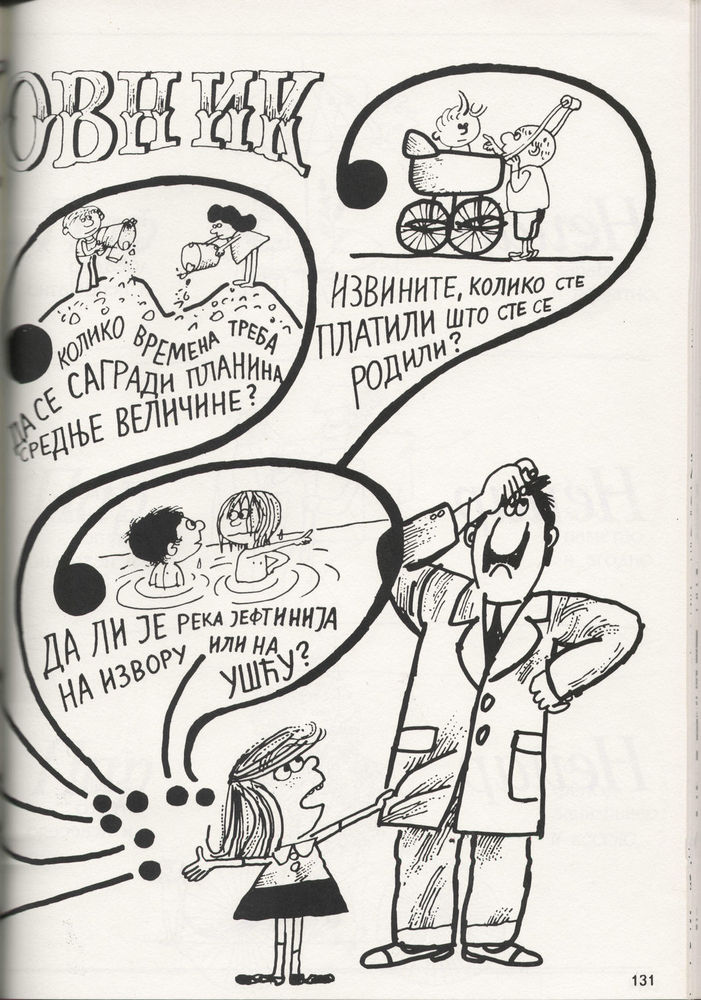 ОВНИК
ИЗВИНИТЕ, КОЛИКО СТЕ
ПЛАТИЛИ ШТО СТЕ СЕ
РОДИЛИ?
КОЛИКО ВРЕМЕНА ТРЕБА
ДА СЕ САГРАДИ ПЛАНИНА
СРЕДЊЕ ВЕЛИЧИНЕ?
ДА ЛИ ЈЕ РЕКА ЈЕФТИНИЈА
НА ИЗВОРУ ИЛИ НА
УШЋУ?
131